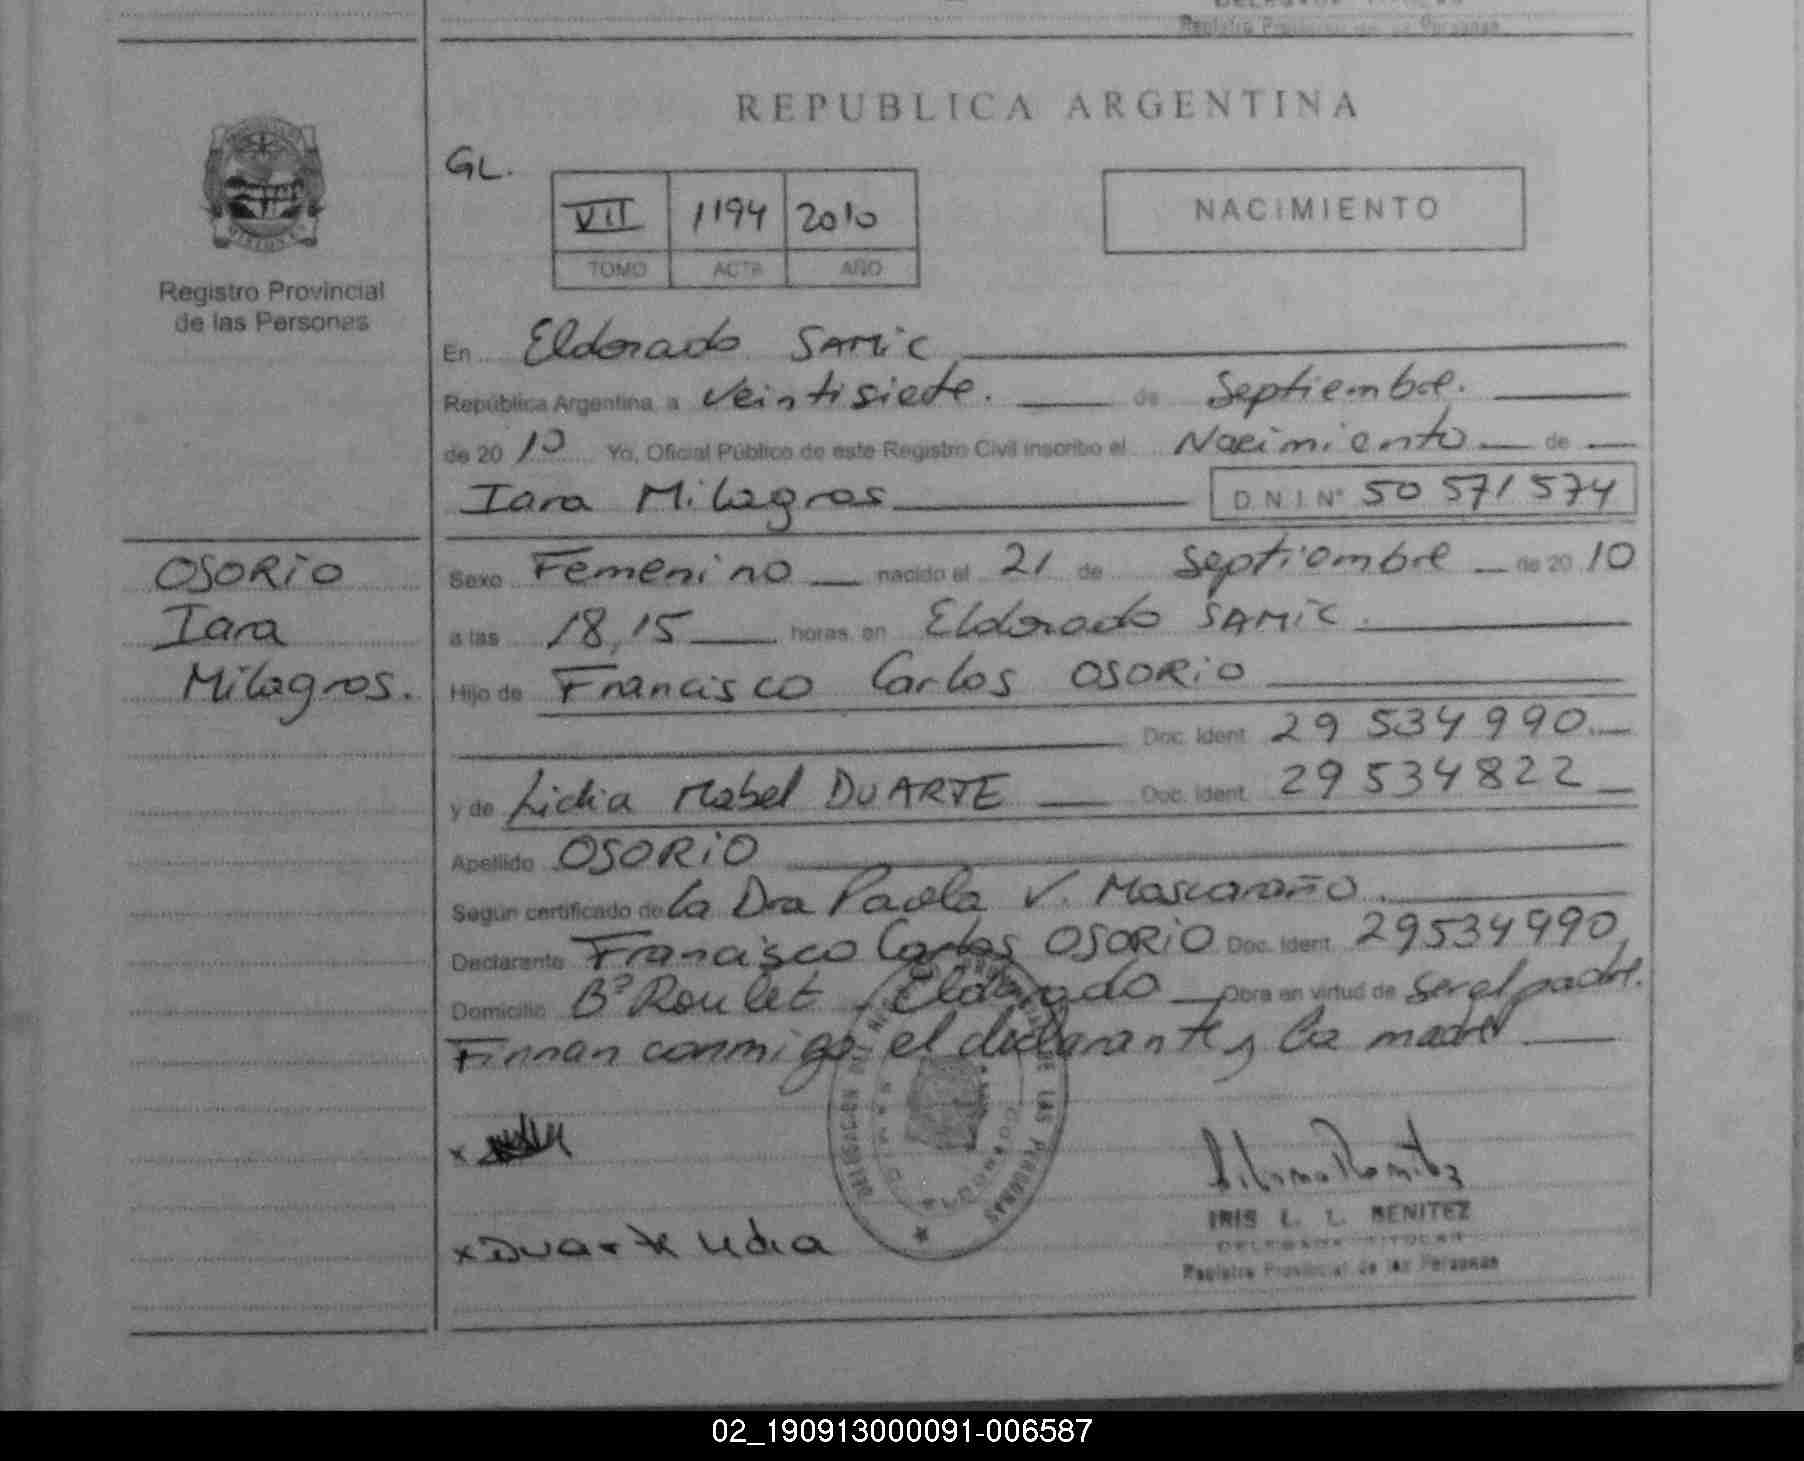 Registro Provincial de las Personas
REPUBLICA ARGENTINA
GL.
VII 1194 2010
TOMO ACTA AÑO
NACIMIENTO
Registro Provincial
de las Personas
En Eldorado SAMiC
República Argentina, a veintisiete. de Septiembre.
de 20 10 Yo, Oficial Público de este Registro Civil inscribo el Nacimiento de
Iara Milagros D.N.I. Nº 50 571 574
OSORiO
Iara
Milagros.
Sexo Femenino nacido el 21 de Septiembre de 20 10
a las 18,15 horas, en Eldorado SAMiC.
Hijo de Francisco Carlos OSORiO
Doc. Ident. 29 534 990.
y de Lidia Mabel DUARTE Doc. Ident. 29 534 822
Apellido OSORiO
Según certificado de la Dra Paola V.
Declarante Francisco Carlos OSORiO Doc. Ident. 29534990,
Domicilio Bº Roulet, Eldorado Obra en virtud de ser el padre.
Firman conmigo el declarante y la madre
x
x Duarte Lidia
DELEGACION DE LAS PERSONAS
IRIS L. L. BENITEZ
DELEGADA TITULAR
Registro Provincial de las Personas
02_190913000091-006587